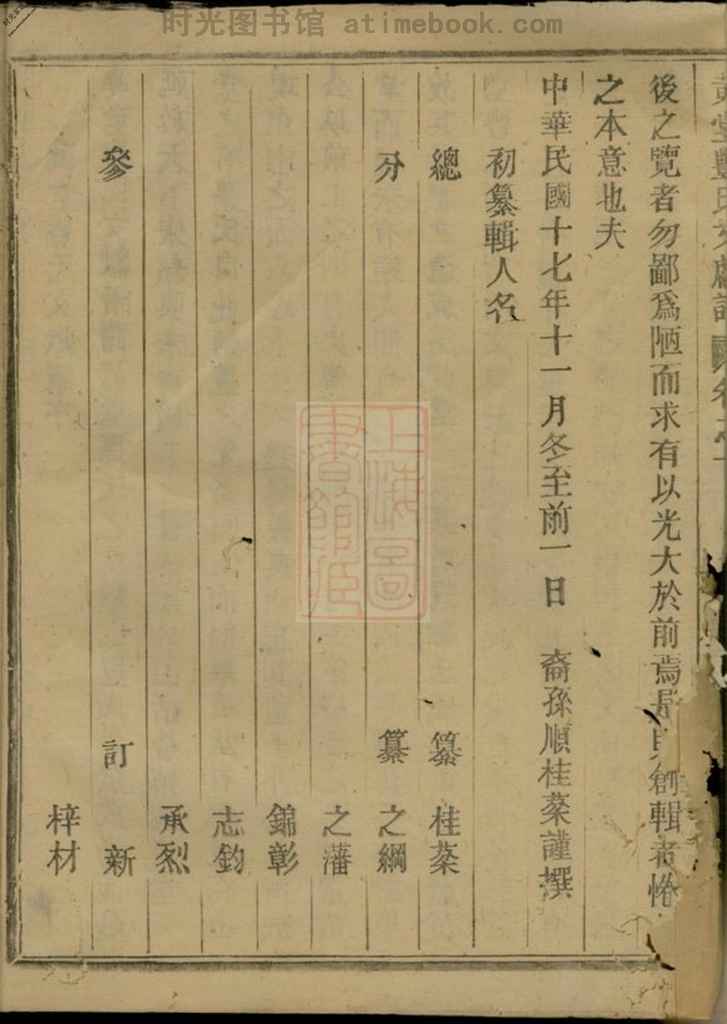 时光图书馆 atimebook.com
後之覽者勿鄙爲陋而求有以光大於前焉是則創輯者惓
之本意也夫
中華民國十七年十一月冬至前一日 裔孫順桂蘂謹撰
初纂輯人名
總 纂 桂蘂
分 纂 之綱
之藩
錦彰
志鈞
承烈
參 訂 新
梓材
上海圖書館藏